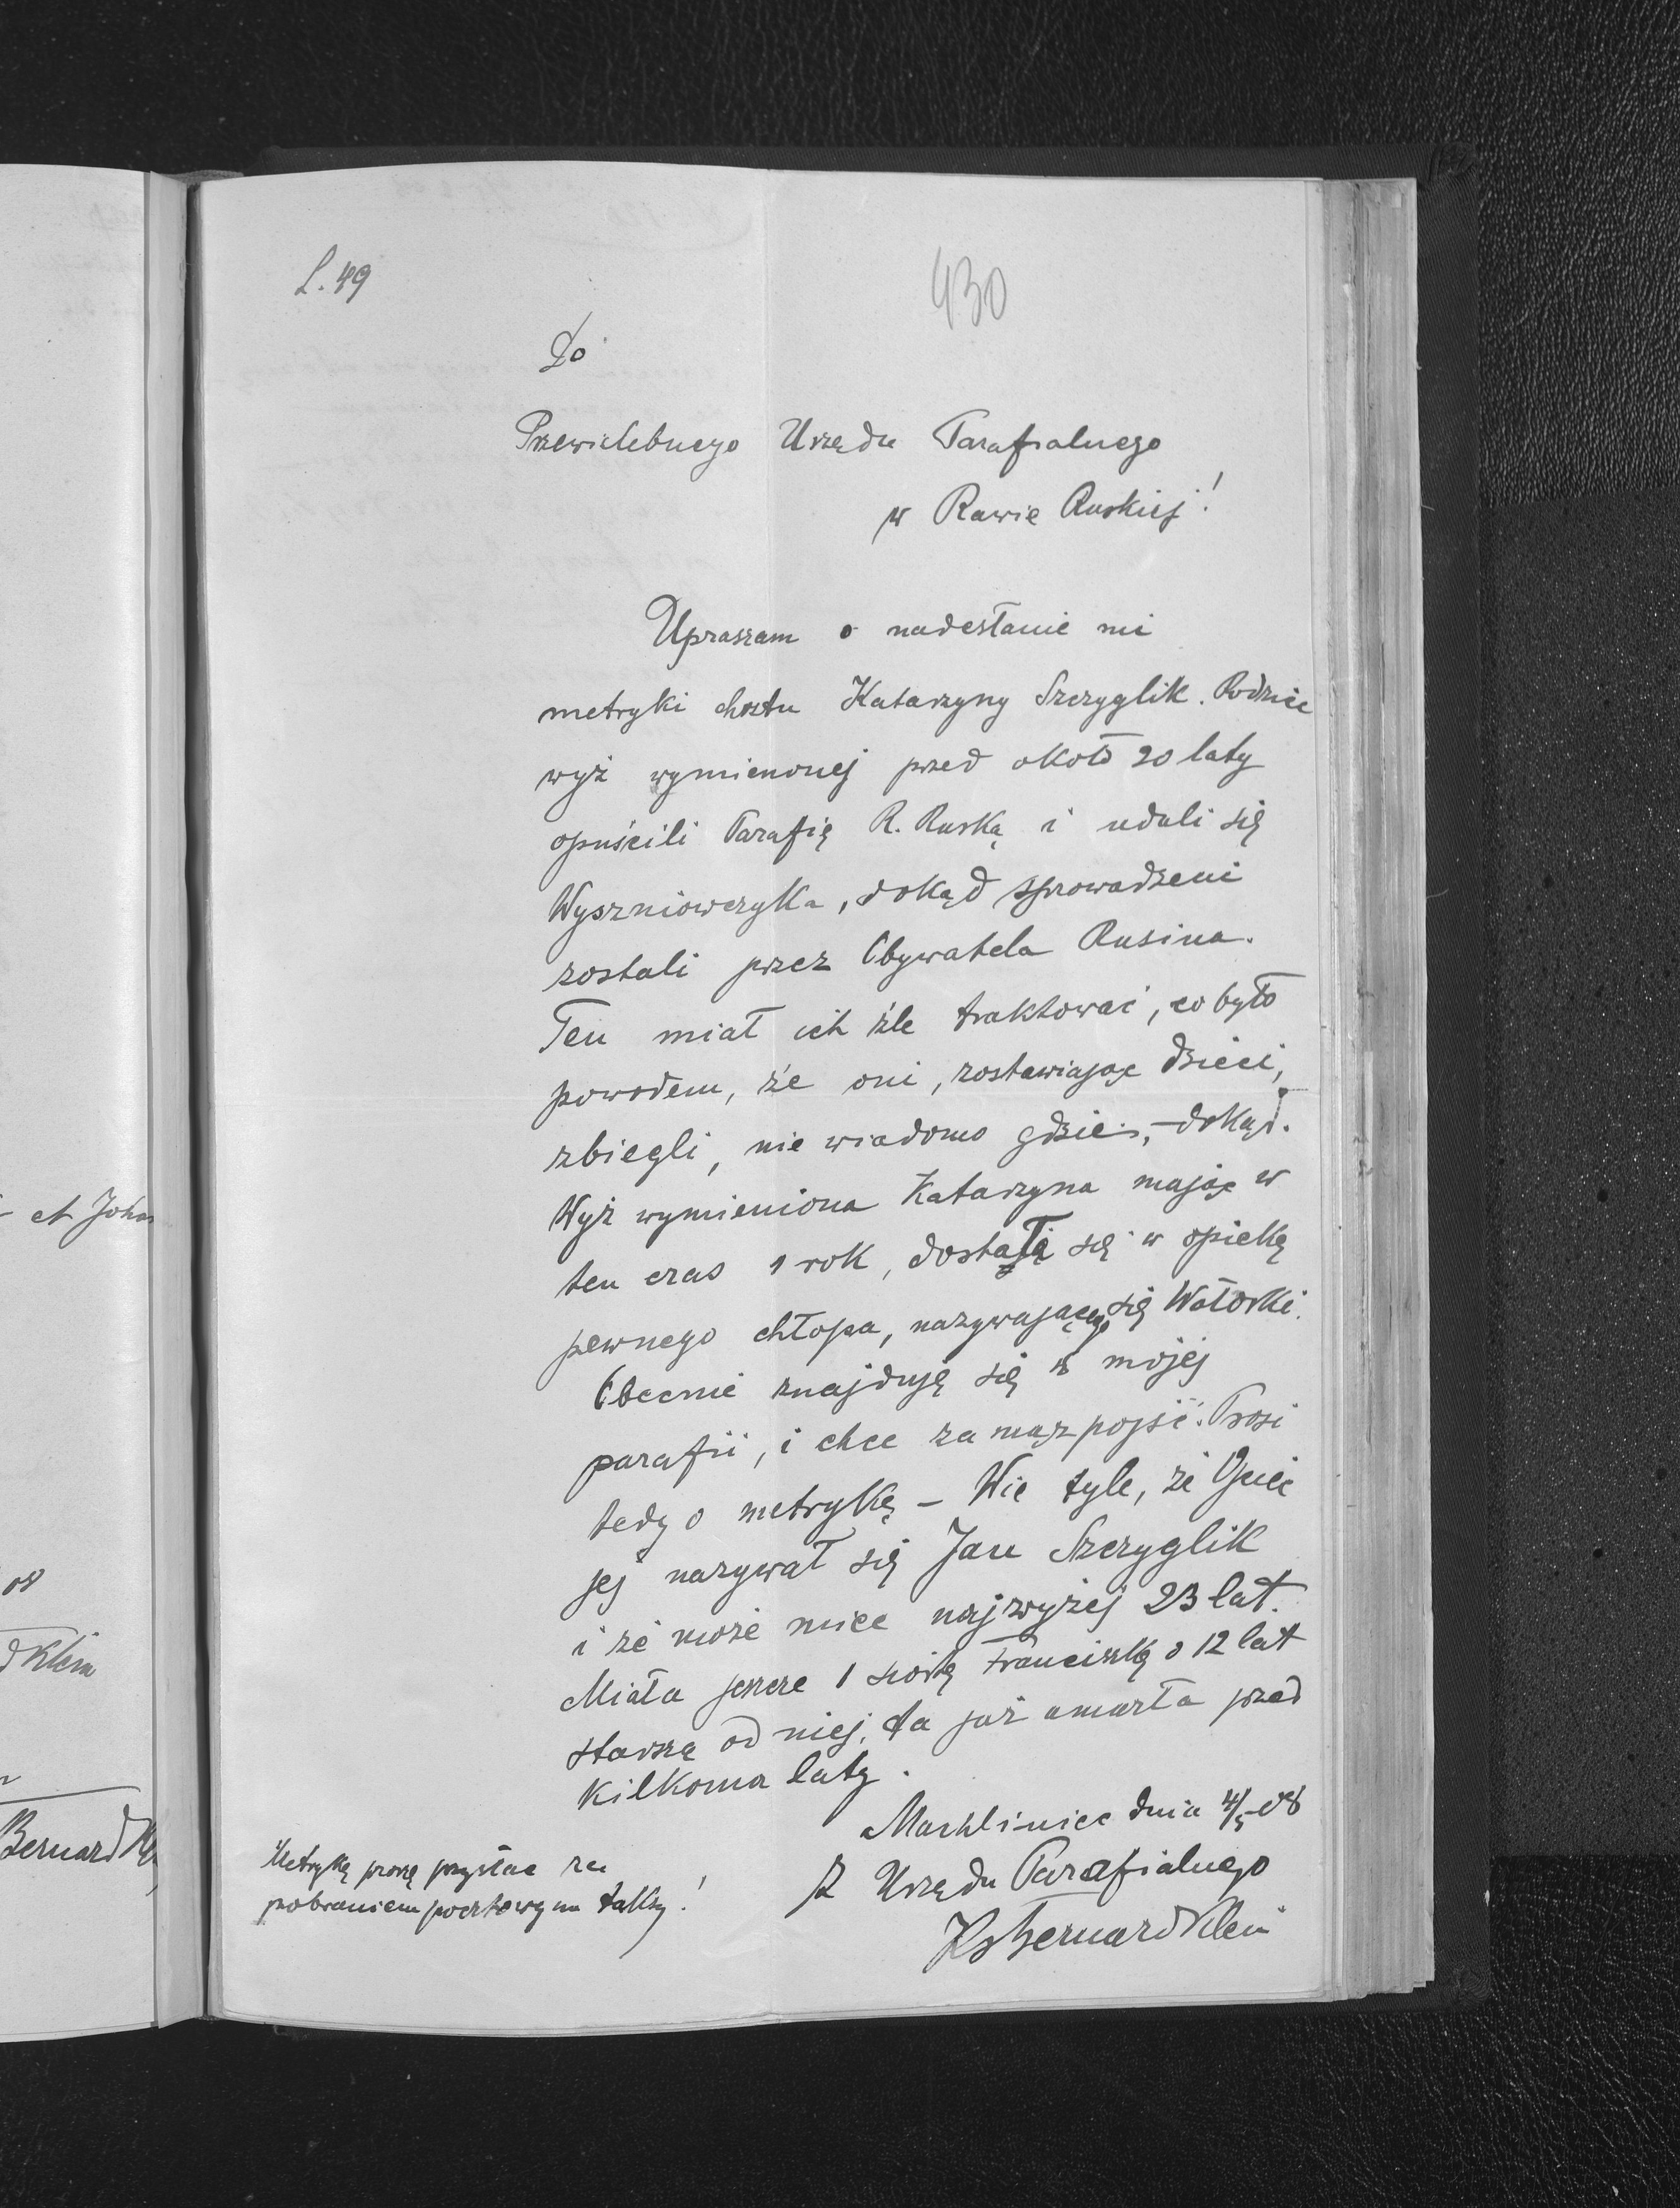 L. 49
430
Do
Przewielebnego Urzędu Parafialnego
w Rawie Ruskiej!
Upraszam o nadesłanie mi
metryki chrztu Katarzyny Szczyglik. Rodzice
wyż wymienonej przed około 20 laty
opuścili Parafię R. Ruską i udali się
Wyszniowczyka, dokąd sprowadzeni
zostali przez Obywatela Rusina.
Ten miał ich źle traktować, co było
powodem, że oni, zostawiając dzieci,
zbiegli, nie wiadomo gdzie, - dokąd.
Wyż wymieniona Katarzyna mając w
ten czas 1 rok, dostała się w opiekę
pewnego chłopa, nazywającego się Watorki.
Obecnie znajduję się w mojej
parafii, i chce za mąz pojść. Prosi
tedy o metrykę – Wie tyle, że Ojciec
jej nazywał się Jan Szczyglik
i że może mieć najzwyżej 23 lat.
Miała jeszcze 1 siostrę Franciszkę o 12 lat
starszą od niej, ta już umarła przed
kilkoma laty.
Machliniec dnia 4/5 08
Z Urzędu Parafialnego
Ks Bernard Klein
Metrykę proszę przysłać za
pobraniem pocztowym taksy!
et Joha
08
d Klein
Bernard Kl